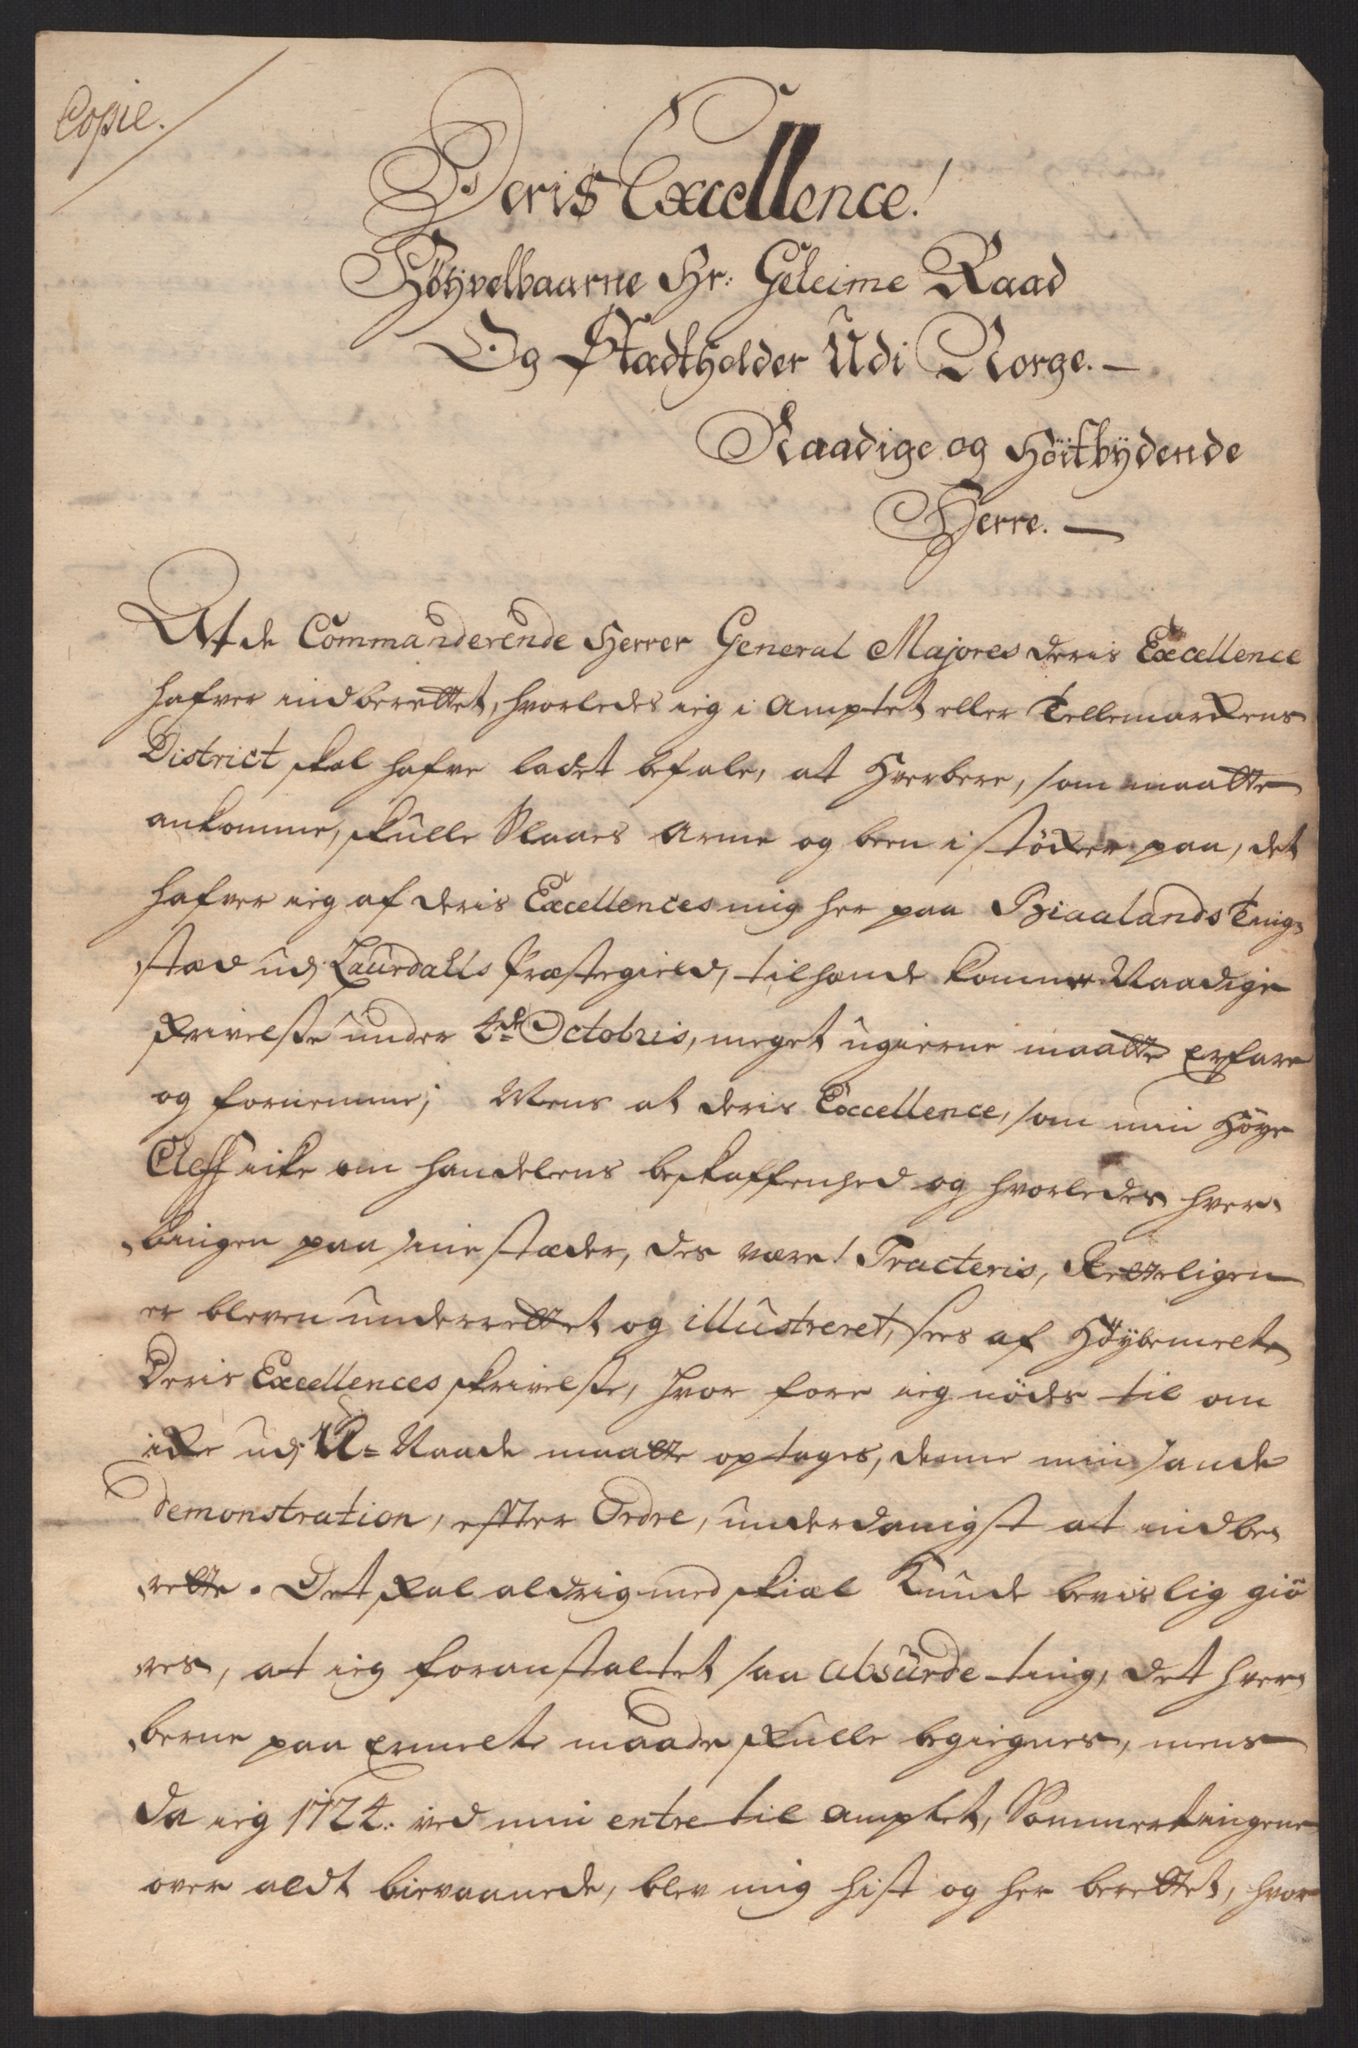 Copie.
Deris Excellence!
Höyvelbaarne Hr: Geheime Raad
Og Stadtholder Udi Norge. —
Naadige og Höitbydende
Herre. —
At de Commanderende Herrer General Majores Deris Excellence
hafver indberettet, hvorledes ieg i Amptet eller Tellemarkens
District skal hafve ladet befale, at Hverbere, som maatte
ankomme, skulle Slaaes Arme og been i støker paa, det
hafver ieg af Deris Excellences mig her paa Biaalands Ting-
stæd udj Laurdahls Præstegield, tilhænde komne Naadige
skrivelse under 4de Octobris, meget ugierne maatte Erfare
og fornemme; Mens at Deris Excellence, som min Høye
Cheff icke om handelens beskaffenhed og hvorledes hver-
bingen paa sine stæder, des være! Tracteris, Retteligen
er bleven underrettet og illustreret, sees af Høybemelte
Deris Excellences skrivelse, hvor fore ieg nødes til om
ike udj U-Naade maatte optages, denne min sande
demonstration, efter Ordre, underdanigst at indbe-
rette. Det skal aldrig med skiæl Kunde bevislig giö-
res, at ieg foranstaltet saa absurde ting, det hver-
berne paa Ermelte maade skulle begiegnes, mens
da ieg 1724. ved min entre til Amptet, Sommertingene
over aldt bievaanede, blev mig hist og her berettet, hvor